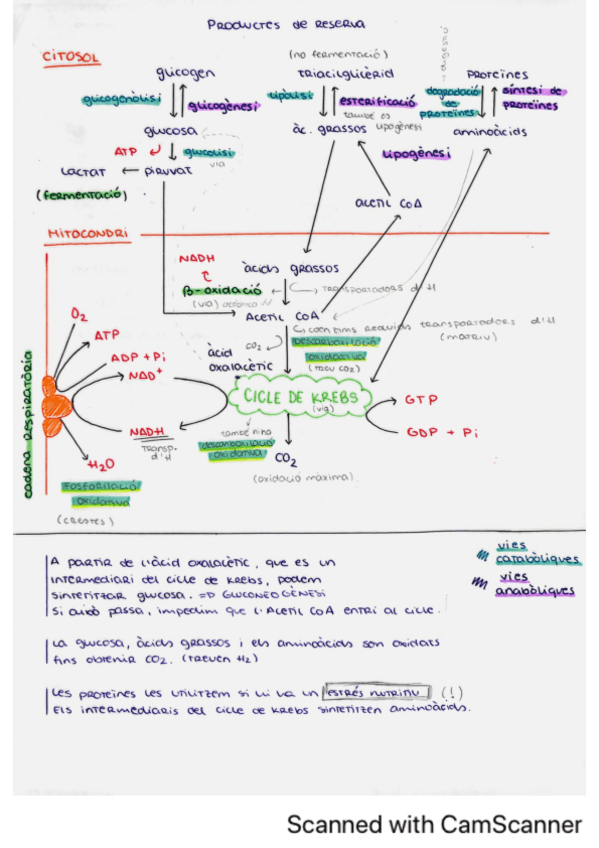 Productes de reserva
CITOSOL
(no fermentació)
glicogen
triacilglicèrid
Proteïnes
glicogenòlisi
glicogènesi
lipòlisi
esterificació
també és lipogènesi
degradació de proteïnes
síntesi de proteïnes
glucosa
àc. grassos
aminoàcids
ATP
glucolisi
via
lipogènesi
Lactat ← piruvat
(fermentació)
acetil CoA
MITOCONDRI
NADH
àcids grassos
β-oxidació
(via)
transportadors d'H
Acetil CoA
coenzims reduïts transportadors d'H
(matriu)
CO2
descarboxilació
oxidativa
(treu CO2)
àcid
oxalacètic
O2
ATP
ADP + Pi
NAD+
CICLE DE KREBS
(via)
GTP
GDP + Pi
NADH
Transp.
d'H
també hi ha
descarboxilació
oxidativa
CO2
(oxidació màxima)
H2O
cadena respiratòria
Fosforilació
oxidativa
(crestes)
vies
catabòliques
vies
anabòliques
A partir de l'àcid oxalacètic, que és un
intermediari del cicle de Krebs, podem
sintetitzar glucosa. => GLUCONEOGÈNESI
Si això passa, impedim que l'Acetil CoA entri al cicle.
La glucosa, àcids grassos i els aminoàcids son oxidats
fins obtenir CO2. (treuen H2)
Les proteïnes les utilitzem si hi ha un estrés nutritiu (!)
Els intermediaris del cicle de Krebs sintetitzen aminoàcids.
Scanned with CamScanner